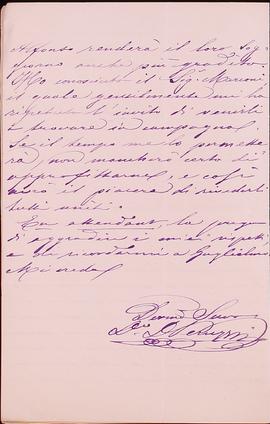 Alfonso renderà il loro sog-
giorno anche più gradito.
Ho conosciuto il Sig. Marconi
il quale gentilmente mi ha
ripetuto l'invito di venirli
a trovare in campagna.
Se il tempo me lo permette-
rà, non mancherò certo di
approfittarne, e così
avrò il piacere di rivederli
tutti uniti.
En attendant, la prego
di aggradire i miei rispetti
e di ricordarmi a Guglielmo
Mi creda
Devmo Servo